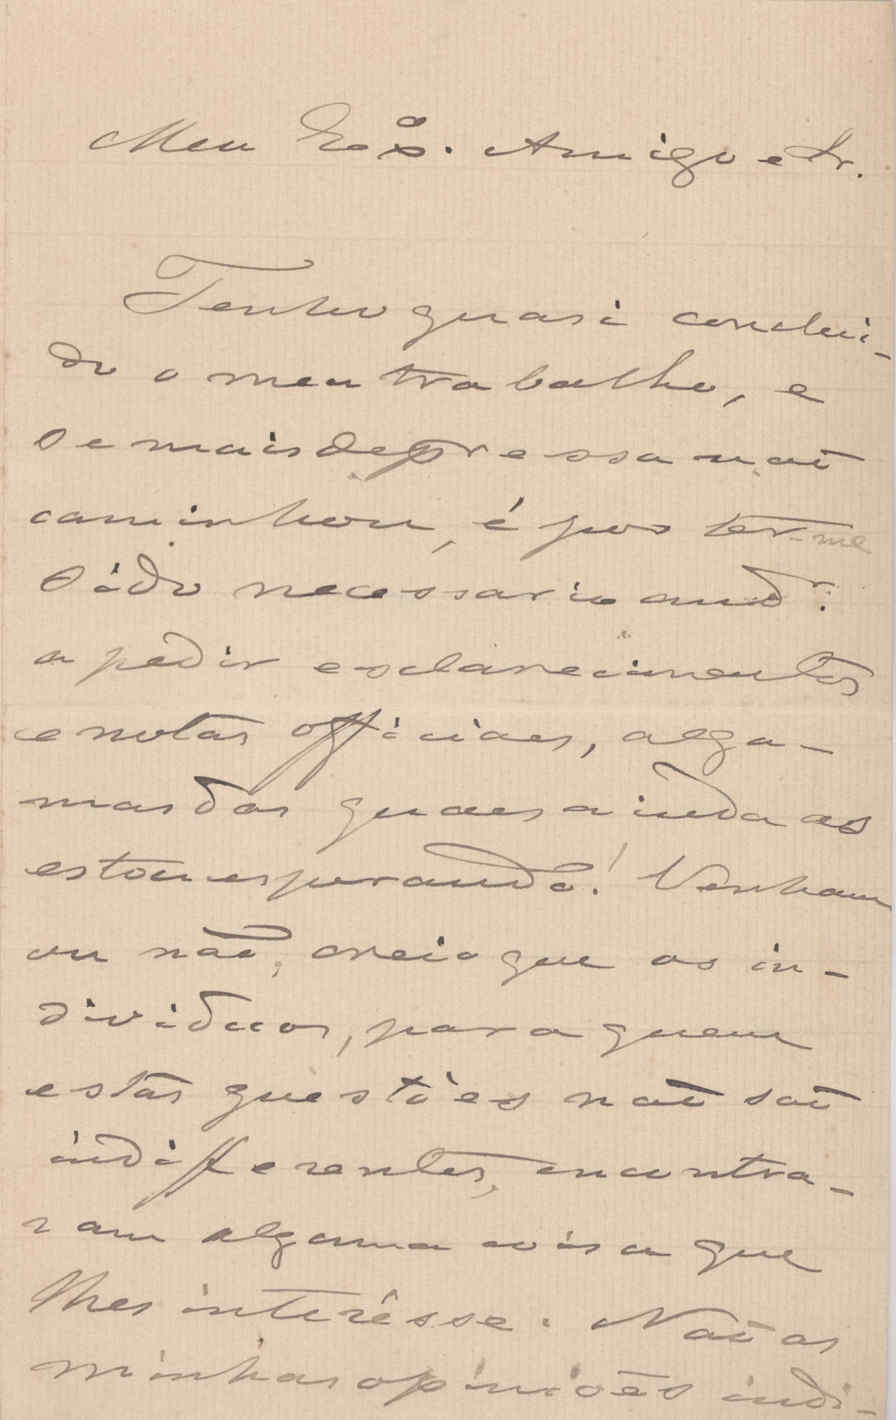 Meu Exº. Amigo e Sr.
Tenho quasi conclui-
do o meu trabalho, e
se mais depressa naõ
caminhou, é pos ter-me
sido necessario andr.
a pedir esclarecimentos
e notas officiaes, algu-
mas das quaes ainda as
estou esperando! Venham
ou naõ, creio que os in-
dividuos, para quem
estas questões naõ saõ
indifferentes, encontra-
ram alguma coisa que
lhes interésse. Naõ as
minhas opiniões indi-